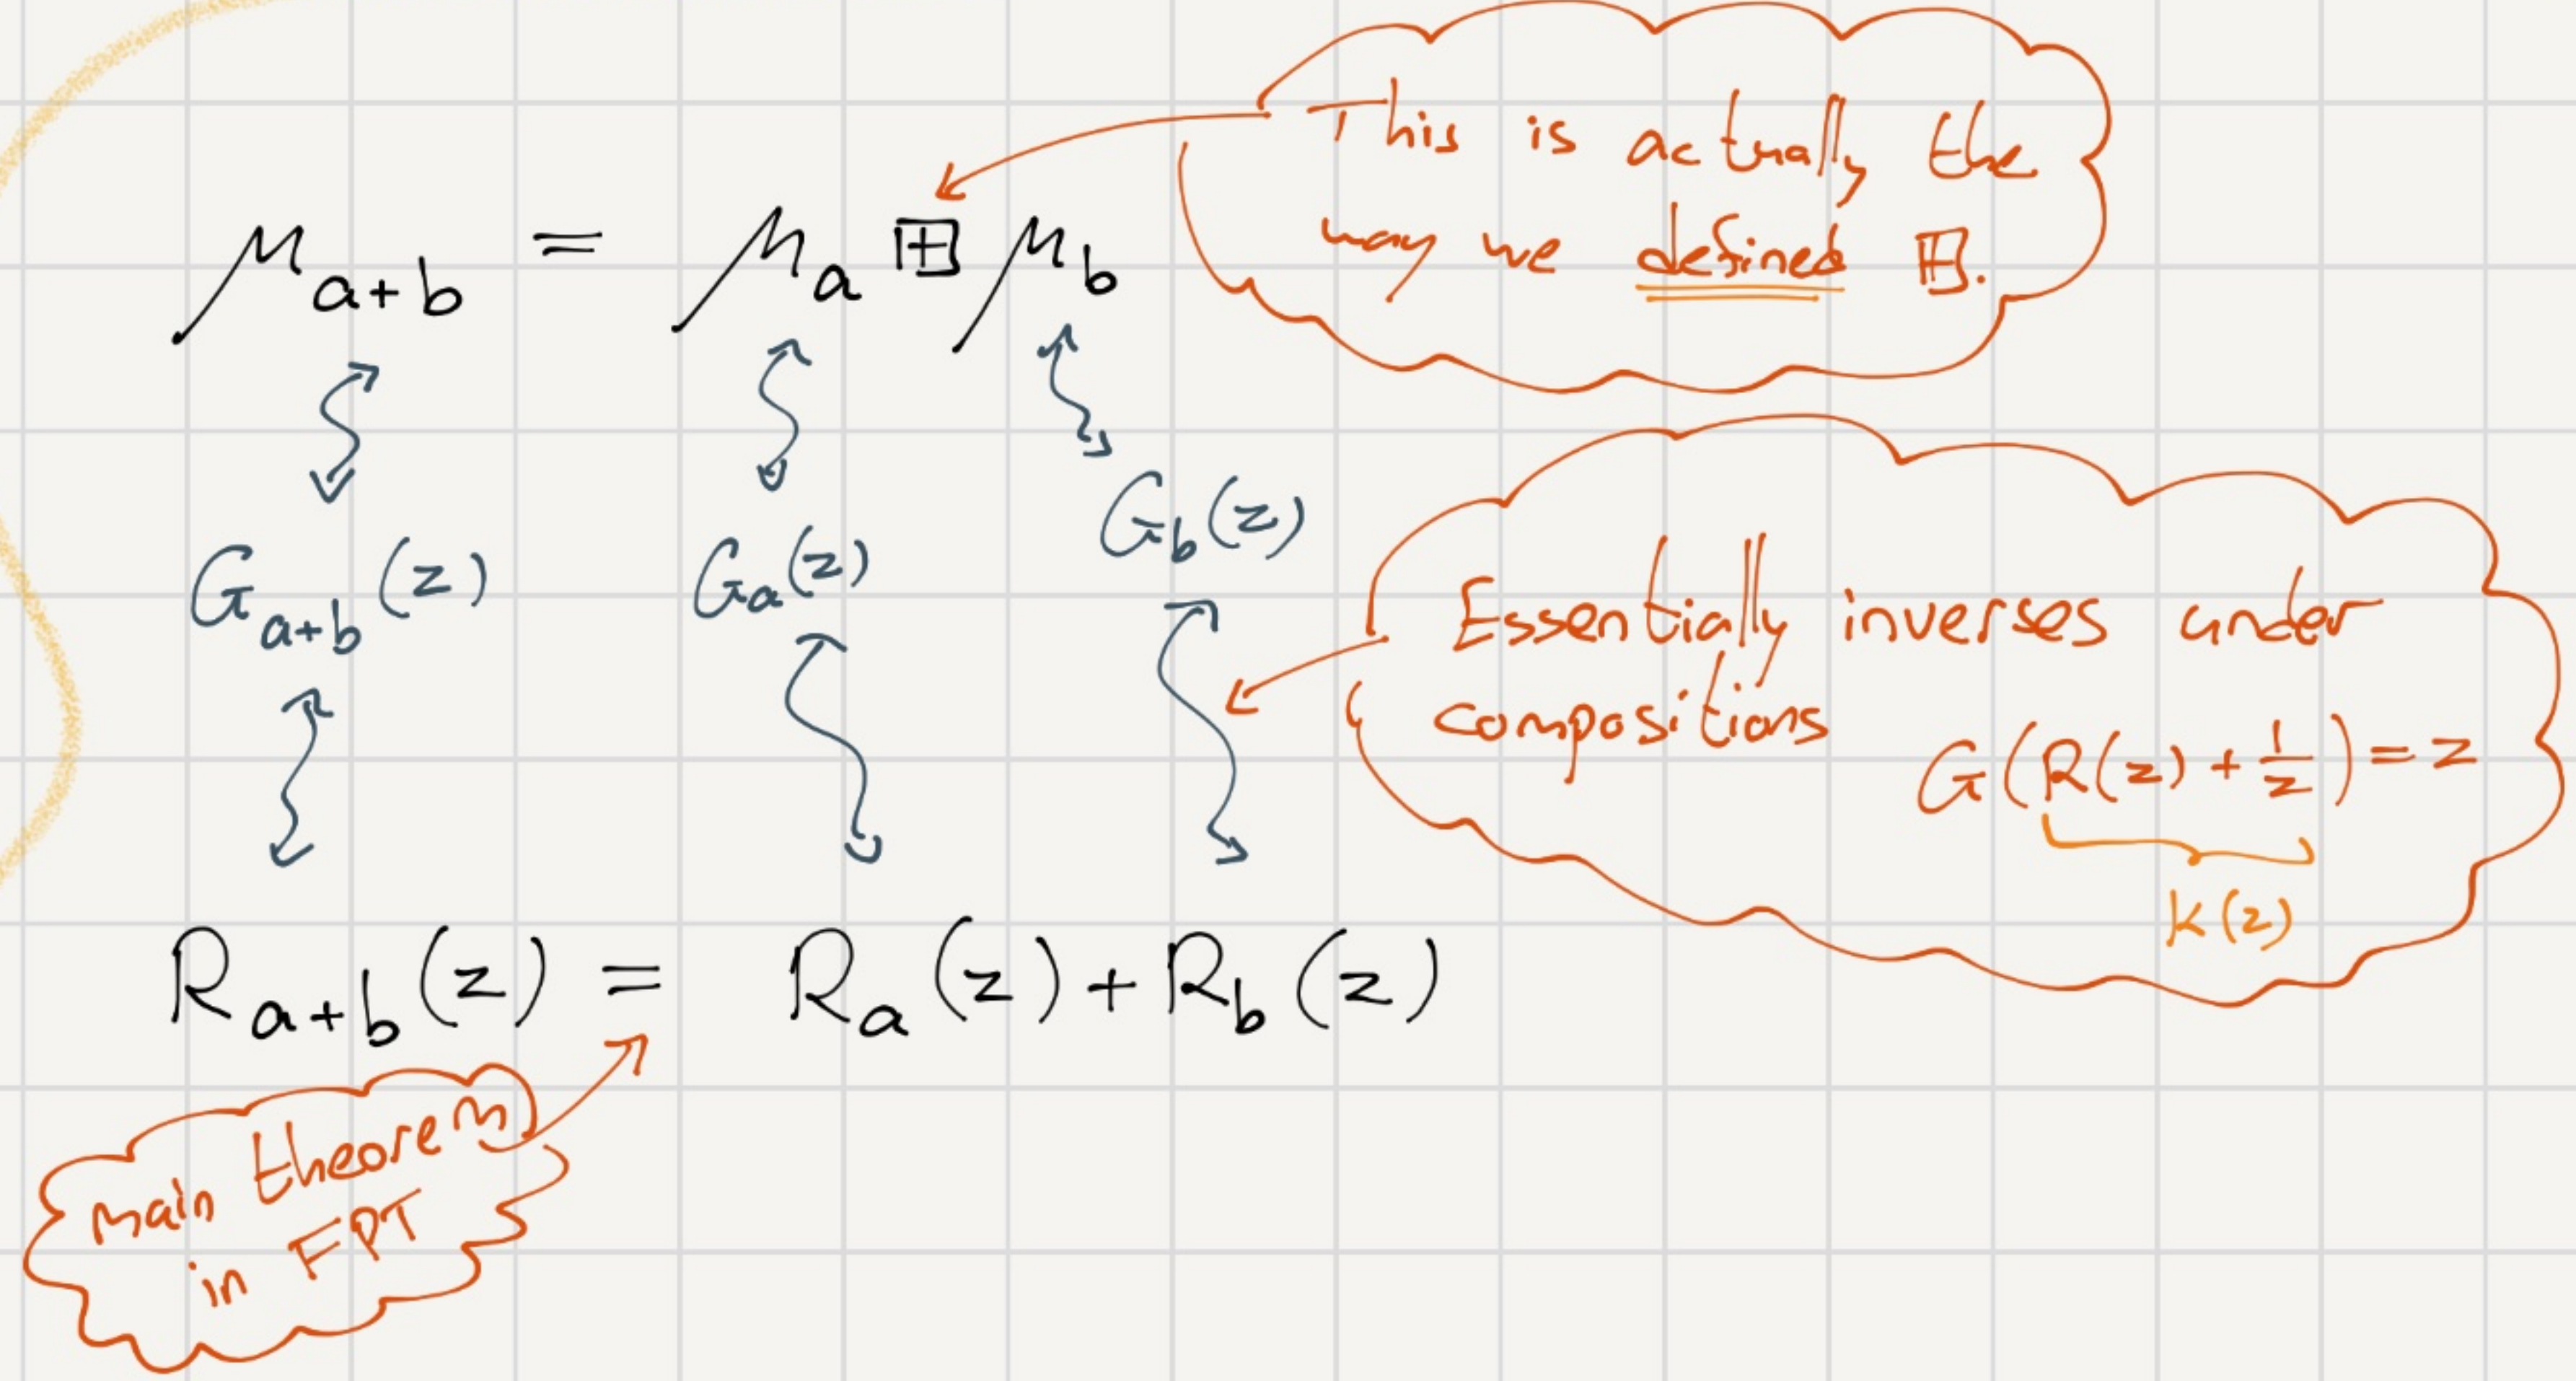 This is actually the
way we defined ⊞.
μ_{a+b} = μ_a ⊞ μ_b
G_{a+b}(z) G_a(z) G_b(z)
Essentially inverses under
compositions
G(R(z) + 1/z) = z
K(z)
R_{a+b}(z) = R_a(z) + R_b(z)
main theorem
in FPT